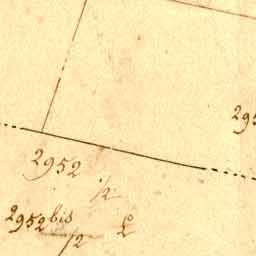 295
2952
1/2
2952 bis
1/2